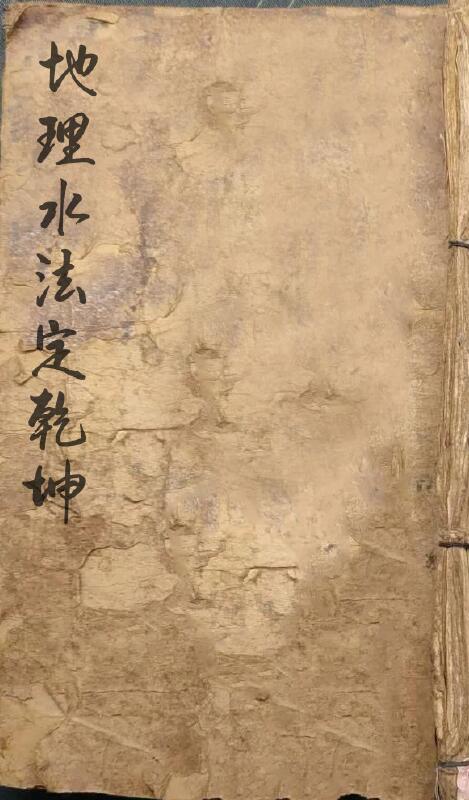 地理水法定乾坤